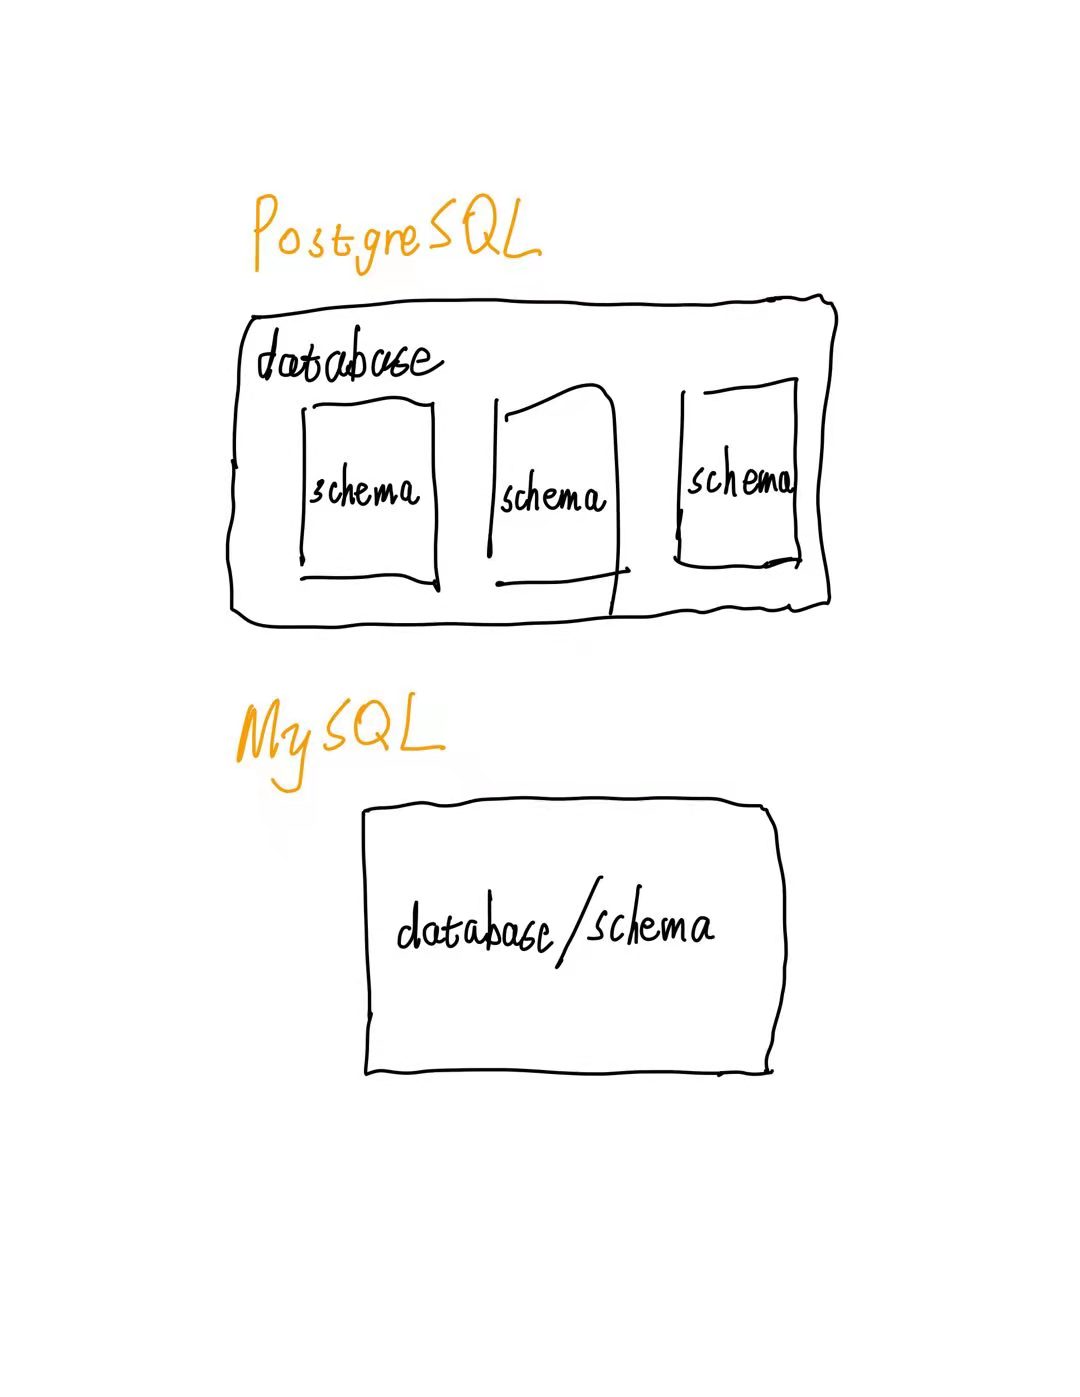 PostgreSQL
database
schema schema schema
MySQL
database/schema